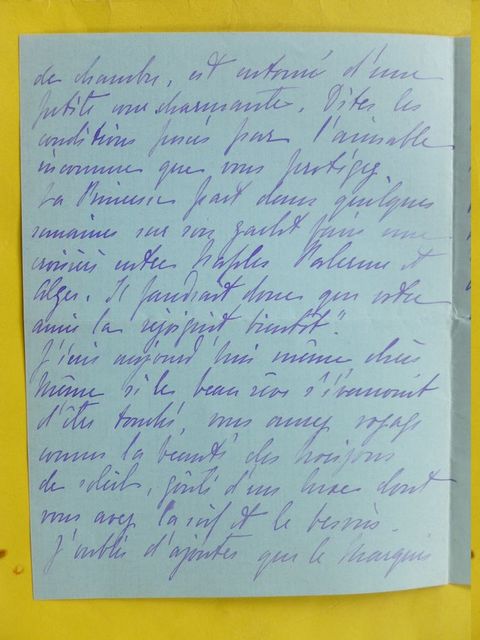 de chambre, est entouré d'une
petite cour charmante. Dites les
conditions posées par l'aimable
inconnue que vous protégez.
La Princesse part dans quelques
semaines sur son yacht faire une
croisière entre Naples Palerme et
Alger. Il faudrait donc que votre
amie la rejoignit bientôt."
J'écris aujourd'hui même chère
Même si les beaux rêves s'évanouit
d'être vous aurez voyagé
connu la beauté des horizons
de soleil, goûté d'un luxe dont
vous avez la soif et le besoin.
J'oublie d'ajouter que le Marquis